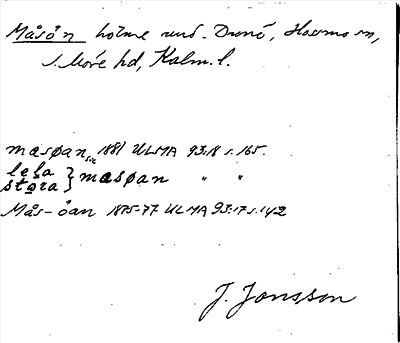 Måsön holme und. Dunö, Hossmo sn,
S. Möre hd, Kalm. l.
masøan sic 1881 ULMA 93:18 s. 165.
lela } masøan " "
stora
Mås-öan 1875-77 ULMA 93:17 s. 142
J. Jonsson